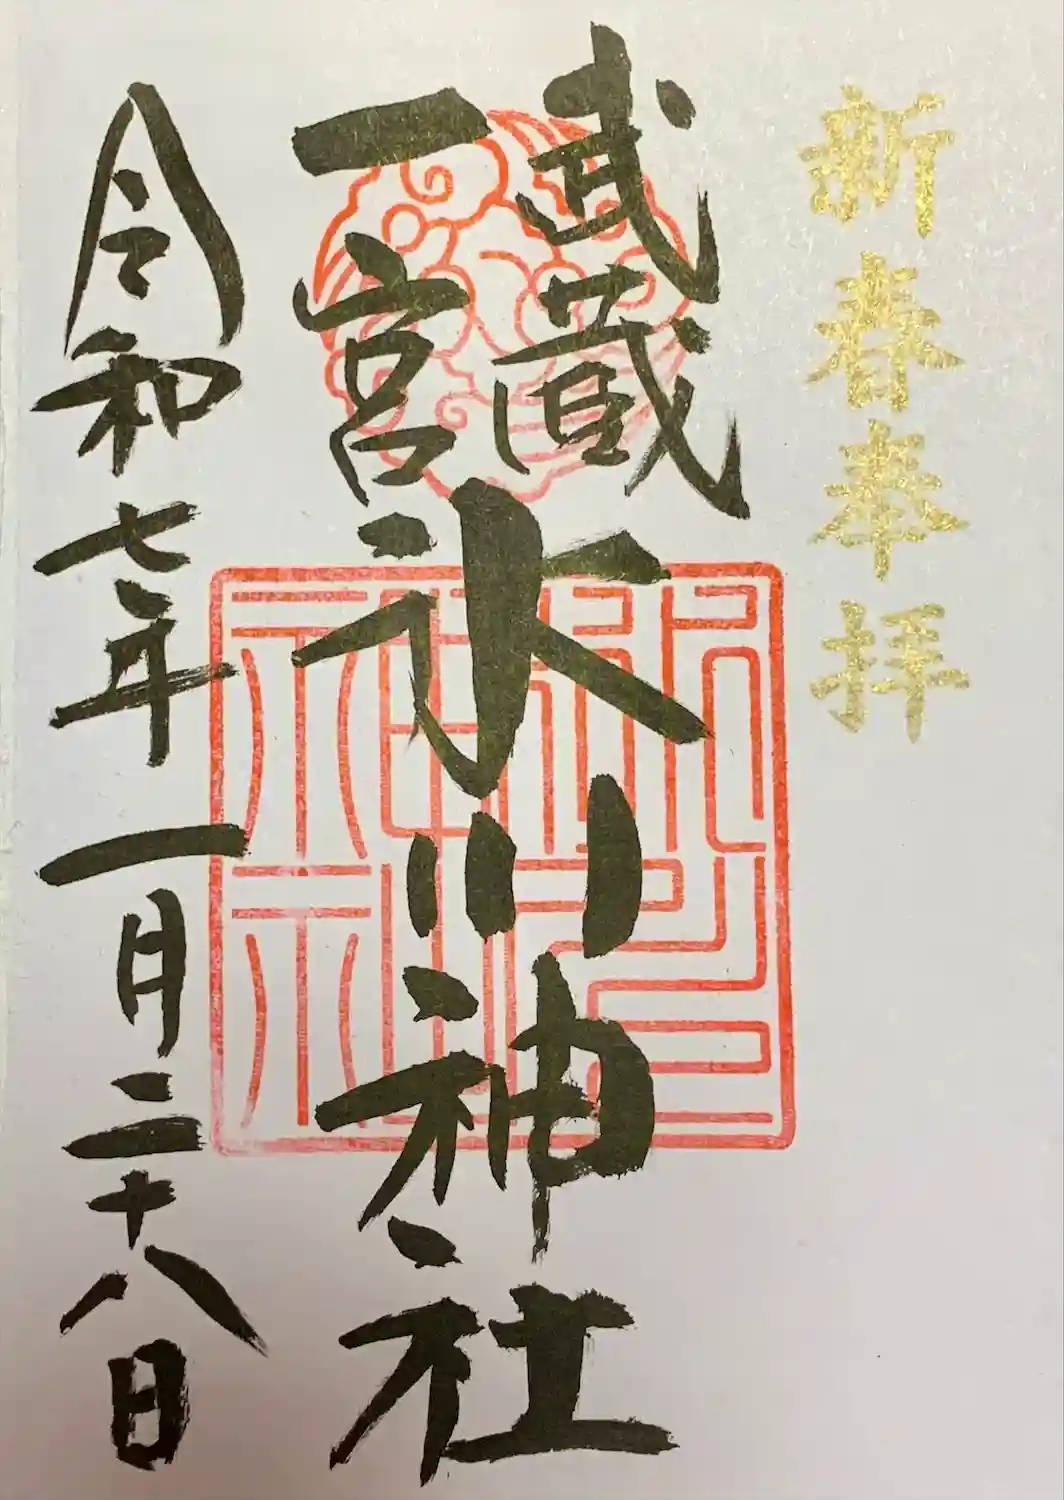 新春奉拝
武蔵
一宮
氷川神社
令和七年一月二十八日